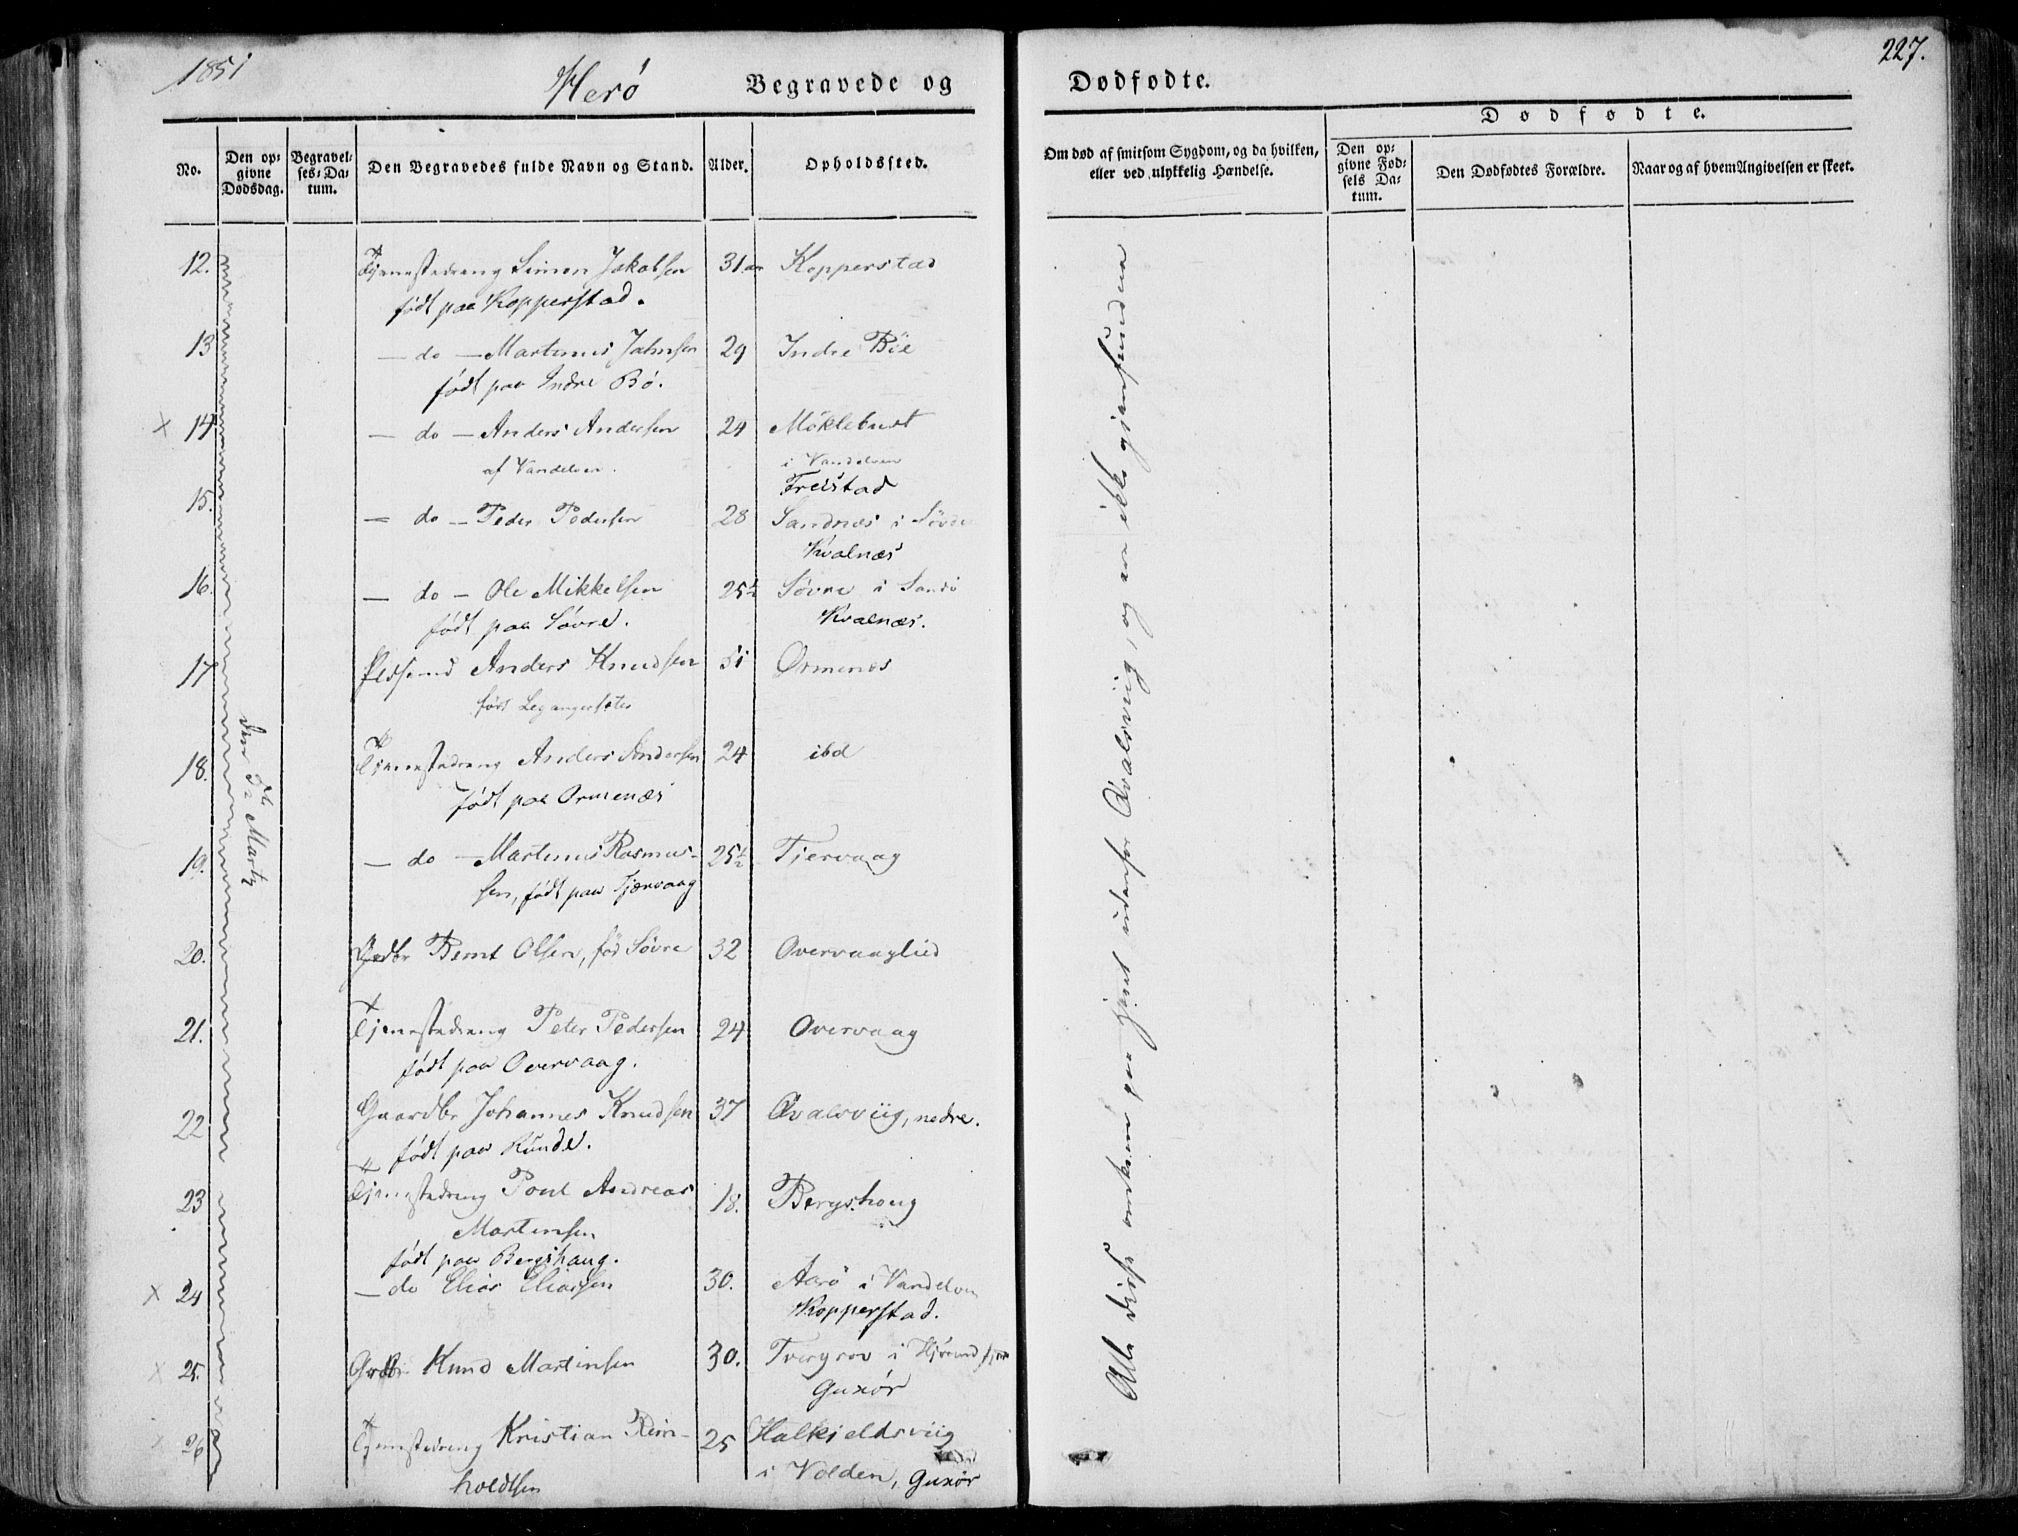 1851
Herö
Begravede og
Dødfødte.
227.
No.
Den opgivne Dødsdag.
Begravelses-Datum.
Den Begravedes fulde Navn og Stand.
Alder.
Opholdssted.
Om død af smitsom Sygdom, og da hvilken, eller ved ulykkelig Hændelse.
Dødfødte.
Den opgivne Fødsels Datum.
Den Dødfødtes Forældre.
Naar og af hvem Angivelsen er skeet.
12. Tjenestedreng Simon Jakobsen 31 Kopperstad
født paa Kopperstad.
13 — do — Martinus Jahnsen 29 Indre Böe
født paa Indre Bø.
× 14 — do — Anders Andersen 29 Möklebust
af Vandelven. i Vandelven
Freistad
15. — do — Peder Pedersen 28 Sandnæs i Søvde
Kvalnæs
16. — do — Ole Mikkelsen 25½ Søvre i Sandö
født paa Søvre. Kvalnæs.
17 Anders Knudsen 51 Ormenæs
født Leganger
18. Tjenestedreng Anders Andersen 24 ibd
født paa Ormenæs
den 5te Marty
19. — do — Martinus Rasmus- 25½ Tjervaag
sen, født paa Tjervaag
20. Gdbr Bernt Olsen, fød Søvre 32 Overvaaglied
21. Tjenestedreng Peter Pedersen 24 Overvaag
født paa Overvaag.
22 Gaardbr Johannes Knudsen 37 Qvalsviig, nedre.
født paa Runde.
23 Tjenestedreng Poul Andreas 18. Bergshoug
Martinsen
født paa Bergshaug.
× 24 — do Elias Eliassen 30. Aarö i Vandelven
Kopperstad.
× 25. Gdbr Knud Martinsen 30. i Hjörundfjord
Guxör
26 Tjenestedreng Kristian Rein- 25 Halkjeldsviig
holdtsen i Volden, Guxör
Alle disse omkom paa Havet udenfor Qvalsviig, og ere ikke gjenfundne